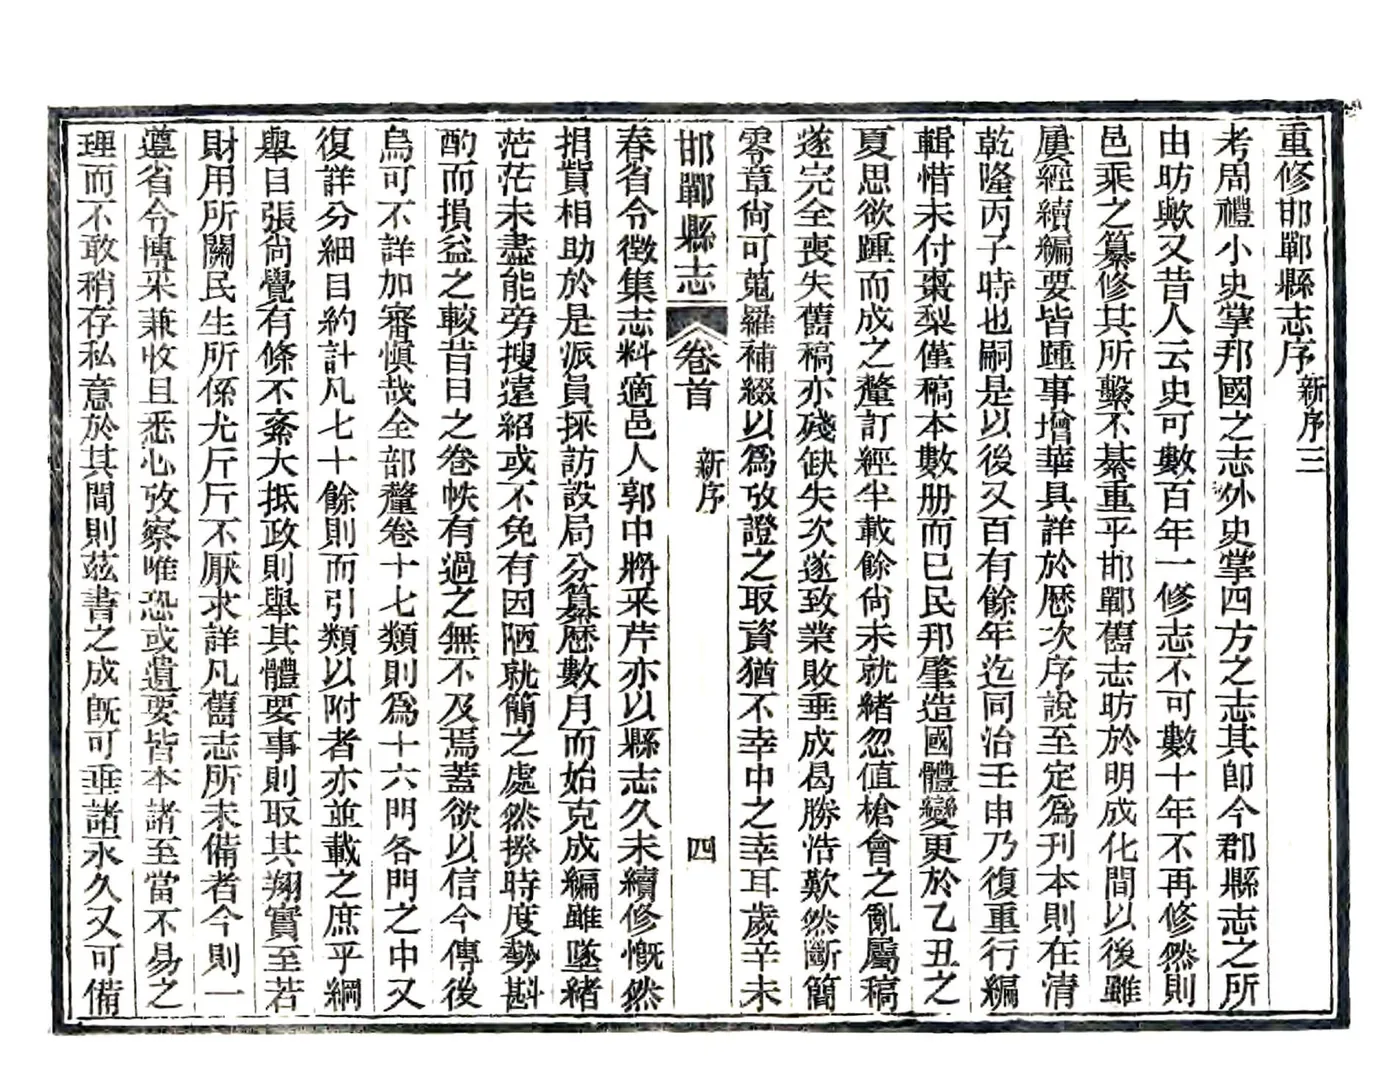 重修邯鄲縣志序 新序三
考周禮小史掌邦國之志外史掌四方之志其卽今郡縣志之所
由昉歟又昔人云史可數百年一修志不可數十年不再修然則
邑乘之纂修其所繫不綦重乎邯鄲舊志昉於明成化間以後雖
屢經續編要皆踵事增華具詳於歷次序說至定爲刊本則在清
乾隆丙子時也嗣是以後又百有餘年迄同治壬申乃復重行編
輯惜未付棗梨僅稿本數册而已民邦肇造國體變更於乙丑之
夏思欲踵而成之釐訂經半載餘尙未就緒忽值槍會之亂屬稿
遂完全喪失舊稿亦殘缺失次遂致業敗垂成曷勝浩歎然斷簡
零章尙可蒐羅補綴以爲攷證之取資猶不幸中之幸耳歲辛未
邯鄲縣志 卷首 新序 四
春省令徵集志料適邑人郭中將采芹亦以縣志久未續修慨然
捐貲相助於是派員採訪設局分纂歷數月而始克成編雖墜緒
茫茫未盡能旁搜遠紹或不免有因陋就簡之處然揆時度勢斟
酌而損益之較昔日之卷帙有過之無不及焉蓋欲以信今傳後
烏可不詳加審愼哉全部釐卷十七類則爲十六門各門之中又
復詳分細目約計凡七十餘則而引類以附者亦並載之庶乎綱
舉目張尙覺有條不紊大抵政則舉其體要事則取其翔實至若
財用所關民生所係尤斤斤不厭求詳凡舊志所未備者今則一
遵省令博采兼收且悉心攷察唯恐或遺要皆本諸至當不易之
理而不敢稍存私意於其間則茲書之成旣可垂諸永久又可備